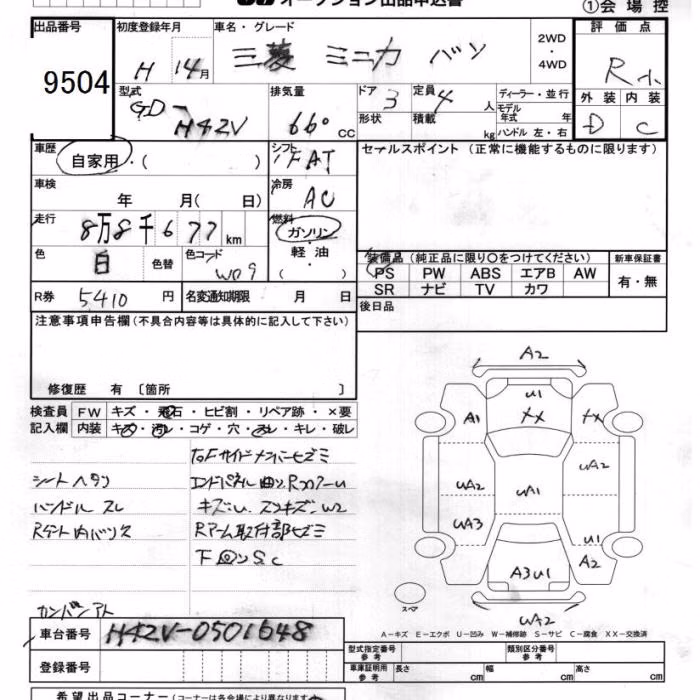 オークション出品申込書
①会場控
出品番号
9504
初度登録年月
H 14月
車名・グレード
三菱 ミニカ バン
2WD
・
4WD
評価点
R
外装 内装
D C
型式
GD-
H42V
排気量
660 CC
ドア 3
定員 4人
形状
積載 kg
ディーラー・並行
モデル
年式 年
ハンドル 左・右
車歴
自家用・( )
シフト
FAT
セールスポイント (正常に機能するものに限ります)
車検
年 月( 日)
冷房
AC
走行
8万8千677 km
燃料
ガソリン
・
軽油
( )
色
白
色替
色コード
W09
装備品 (純正品に限り○をつけてください)
新車保証書
PS PW ABS エアB AW
有・無
SR ナビ TV カワ
R券 5410円
名変通知期限 月 日
後日品
注意事項申告欄(不具合内容等は具体的に記入して下さい)
修復歴 有 〔箇所 〕
検査員
記入欄
FW キズ・飛石・ヒビ割・リペア跡・×要
内装 キズ・汚レ・コゲ・穴・スレ・キレ・破レ
シートヘタリ
ハンドルスレ
キズu、スリキズ、W2
R取付部
下回りSC
A2
U1
A1
XX
XX
UA2
UA2
UA1
UA3
U1
A2
A3U1
UA2
スペア
A-キズ E-エクボ U-凹み W-補修跡 S-サビ C-腐食 XX-交換済
車台番号 H42V-0501648
登録番号
型式指定番号
参考
類別区分番号
参考
車庫証明用
参考
長さ cm
幅 cm
高さ cm
希望出品コーナー(名称は各会場により異なります)